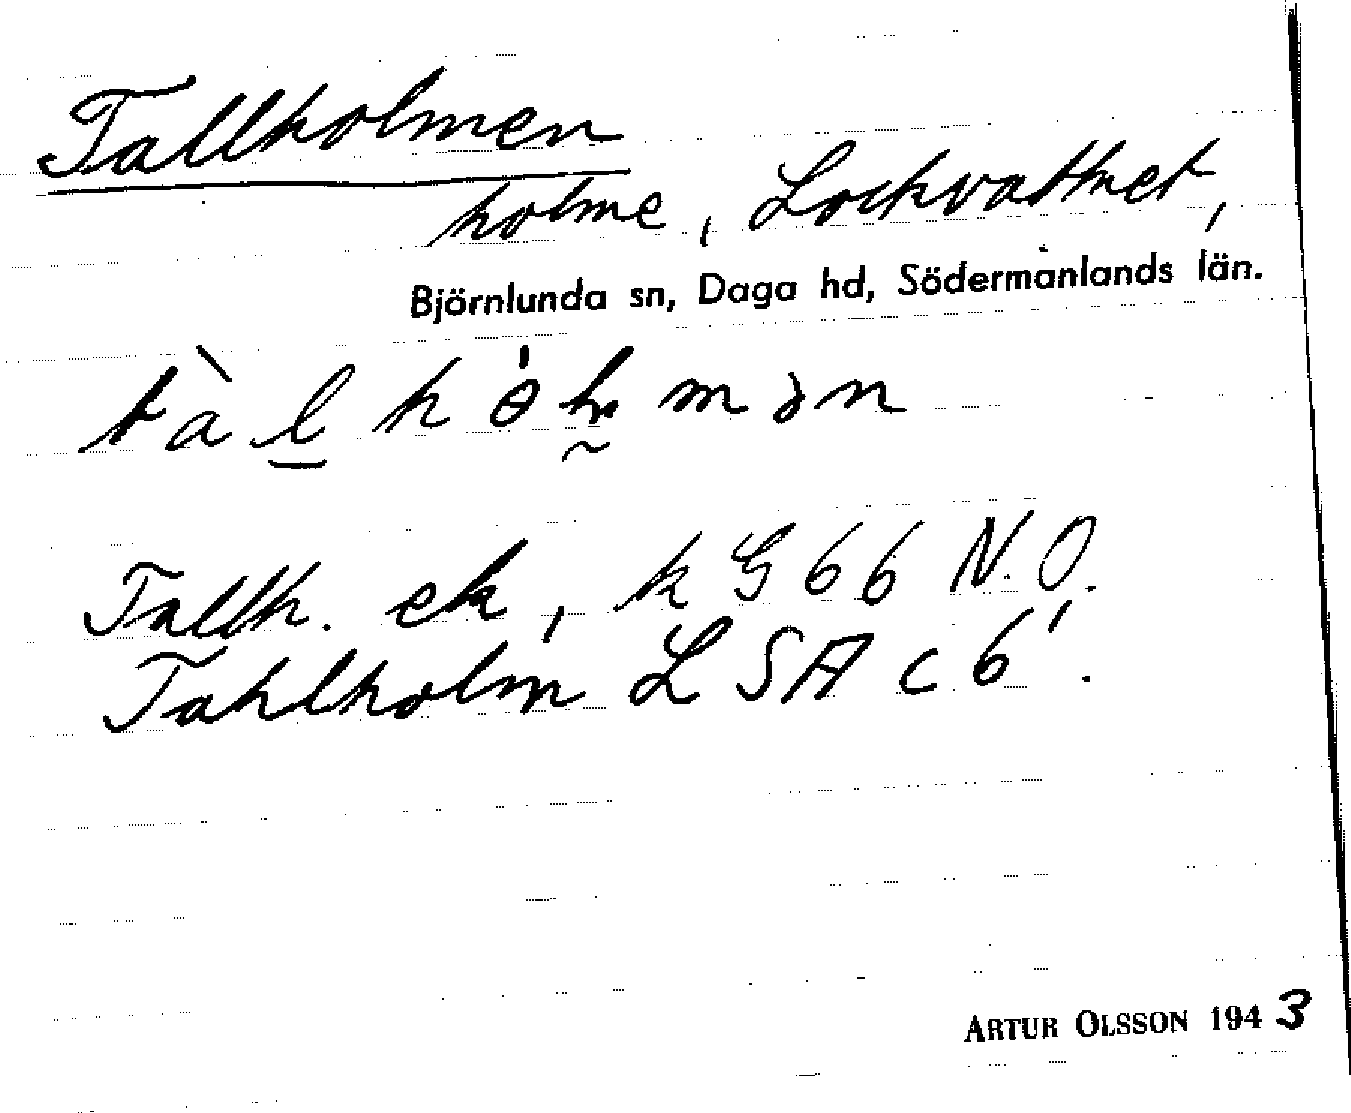 Tallholmen
holme, Lockvattnet,
Björnlunda sn, Daga hd, Södermanlands län.
Tallh. ek, k G 66 N.O.
Tahlholm L S A c 6'.
ARTUR OLSSON 1943